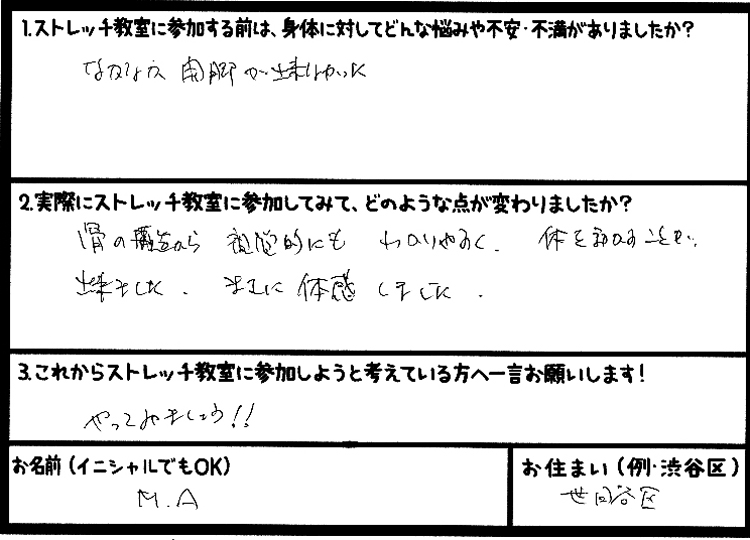 1.ストレッチ教室に参加する前は、身体に対してどんな悩みや不安・不満がありましたか?
なかなか 開脚が出来なかった
2.実際にストレッチ教室に参加してみて、どのような点が変わりましたか?
骨の構造から 視覚的にも わかりやすく、体を動かすことが、
出来ました。まさに 体感 しました。
3.これからストレッチ教室に参加しようと考えている方へ一言お願いします!
やってみましょう!!
お名前(イニシャルでもOK)
M.A
お住まい(例・渋谷区)
世田谷区